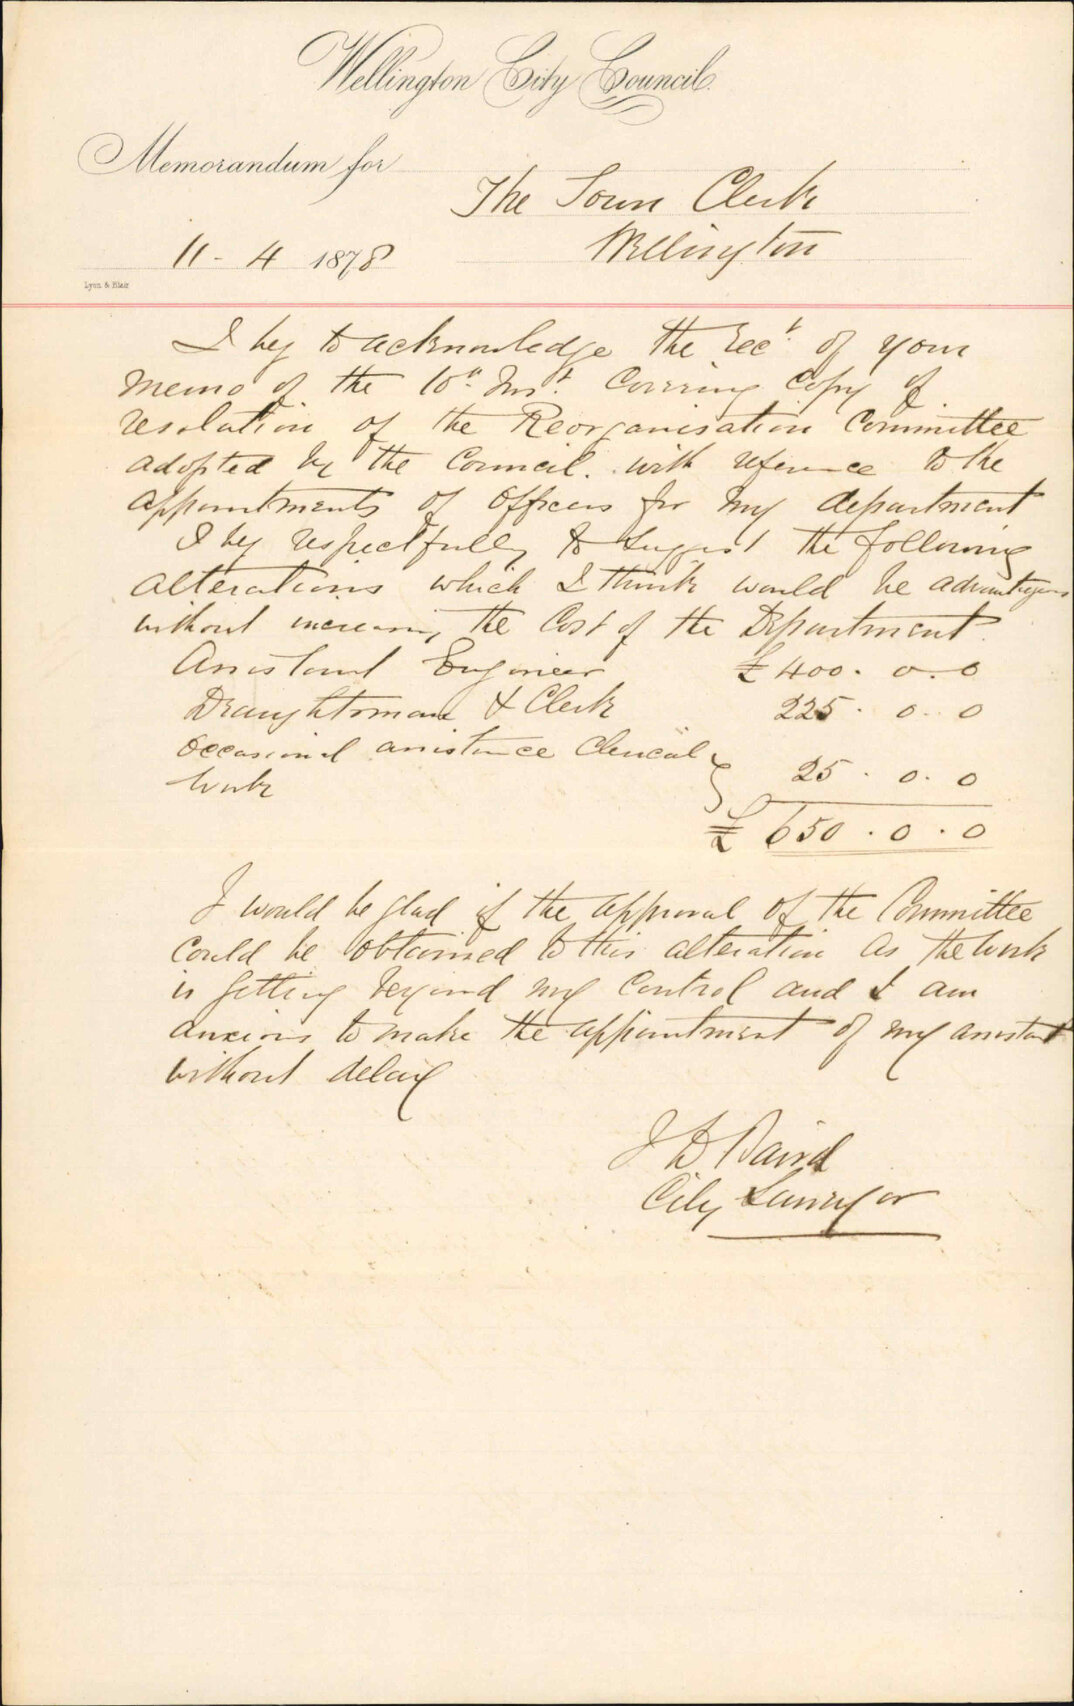 Wellington City Council.
Memorandum for
The Town Clerk
Wellington
11 - 4 1878
Lyon & Blair
I beg to acknowledge the rect. of your
memo of the 10th Inst. Covering Copy of
resolution of the Reorganisation Committee
adopted by the Council. with reference to the
appointments of Officers for my department
I beg respectfully to suggest the following
alterations which I think would be advantageous
without increasing the Cost of the Department.
Assistant Engineer £ 400. 0. 0
Draughtsman & Clerk 225. 0. 0
Occasional assistance Clerical
Work } 25. 0. 0
£ 650. 0. 0
I would be glad if the approval of the Committee
could be obtained to this alteration as the work
is getting beyond my Control and I am
anxious to make the appointment of my assistant
without delay
J D Baird
City Surveyor